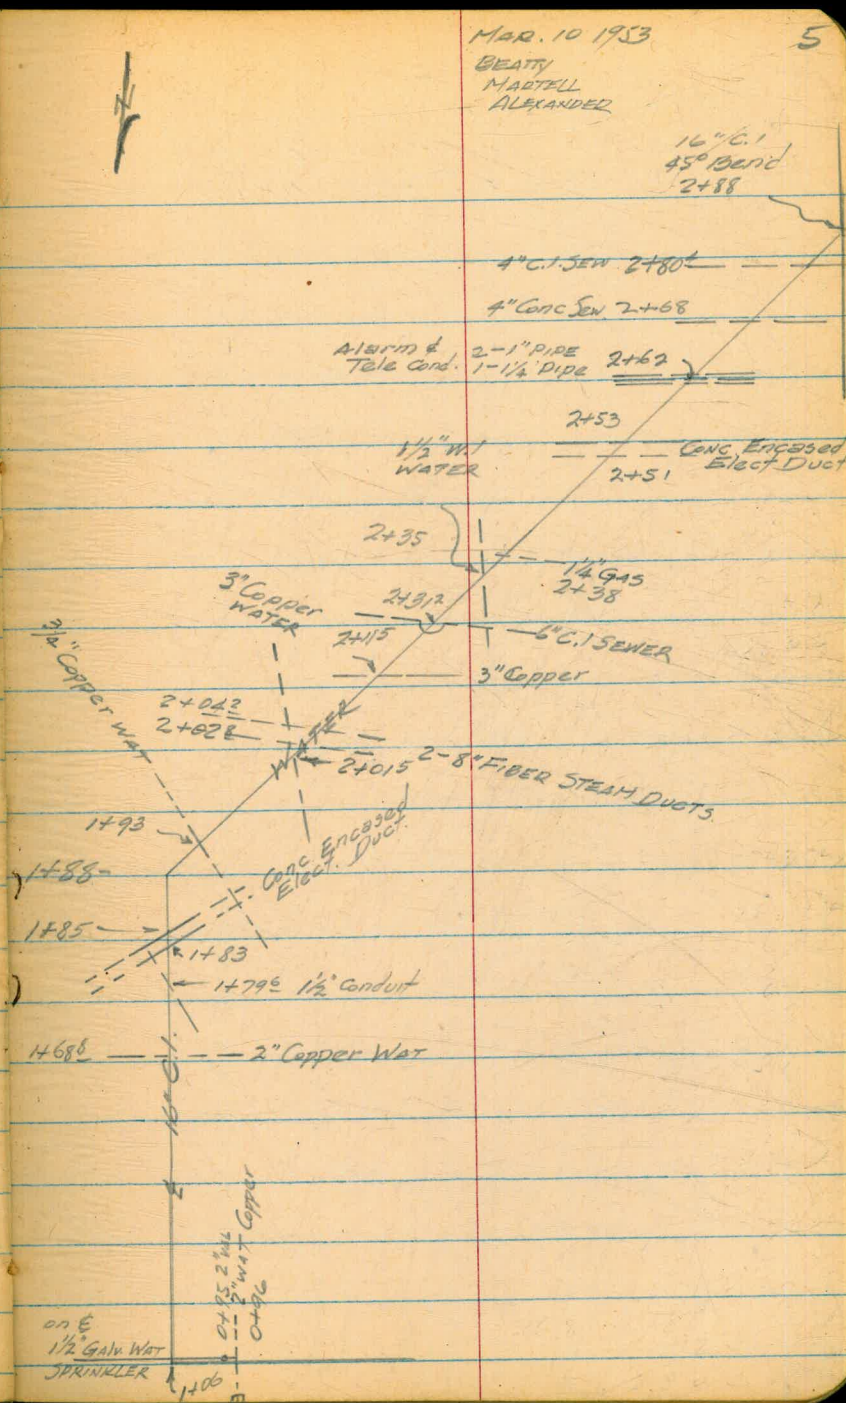 MAR. 10 1953
5
BEATTY
MARTELL
ALEXANDER
16" C.I
45° Bend
2+88
4" C.I. SEW 2+80⁴
4" Conc Sew. 2+68
Alarm & 2-1" PIPE
Tele Cond. 1-1¼ Pipe
2+62
2+53
1½" W.I
WATER
Conc. Encased
Elect. Duct
2+51
2+35
1¼" GAS
2+38
3" Copper
WATER
2+31²
6" C.I SEWER
2+11⁵
3" Copper
¾" Copper WAT
2+04²
2+02⁸
WATER
2+01⁵
2-8" FIBER STEAM DUCTS
1+93
Conc Encased
Elect. Duct.
1+88
1+85
1+83
1+79⁶ 1½" Conduit
1+68⁶
2" Copper WAT
16" C.I.
0+95 2" Val
2" WAT Copper
0+96
on ℄
1½" Galv. WAT
SPRINKLER
1+06